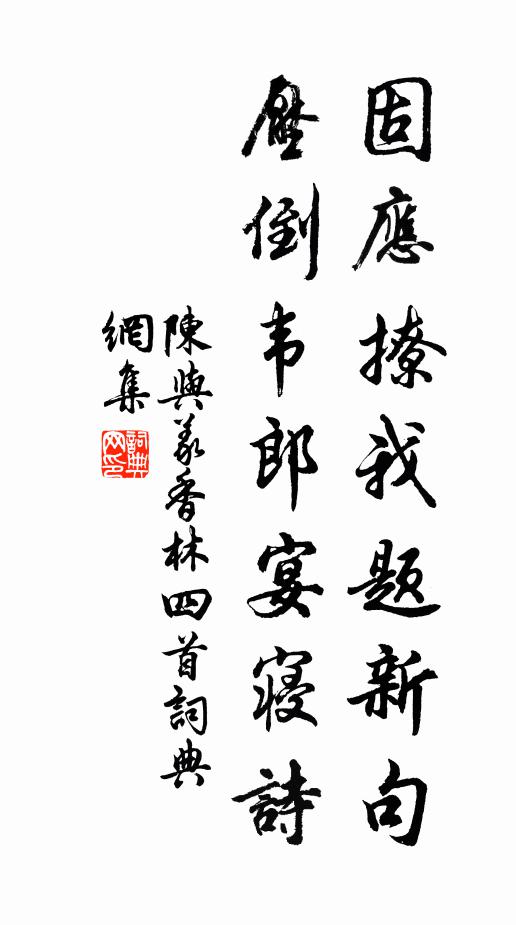 固應撩我題新句
壓倒韦郎宴寝詩
陳與義香林四首詞典
網集
詞典
网印